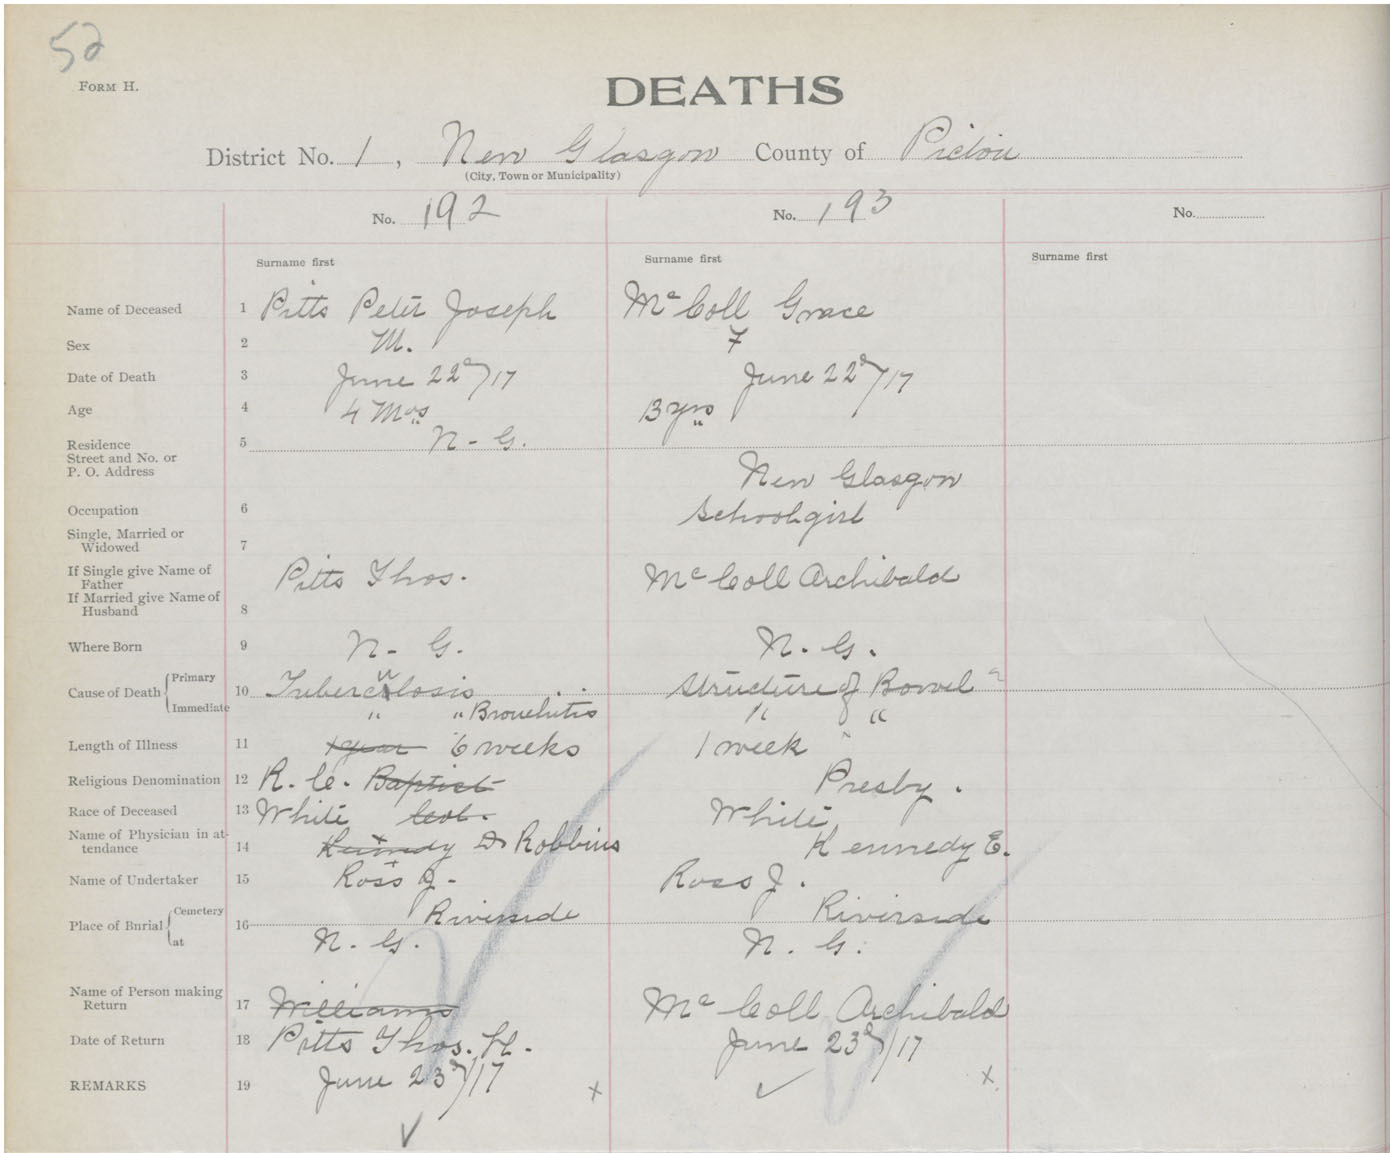 52
FORM H.
DEATHS
District No. 1, New Glasgow County of Pictou
(City, Town or Municipality)
No. 192 No. 193 No.
Surname first Surname first Surname first
Name of Deceased 1 Pitts Peter Joseph McColl Grace
Sex 2 M. F
Date of Death 3 June 22d/17 June 22d/17
Age 4 4 Mos 13 yrs
Residence 5 N-G.
Street and No. or
P. O. Address New Glasgow
Occupation 6 Schoolgirl
Single, Married or
Widowed 7
If Single give Name of
Father Pitts Thos. McColl Archibald
If Married give Name of
Husband 8
Where Born 9 N-G. N.G.
Cause of Death Primary 10 Tuberculosis Structure of Bowel
Immediate " " Bronchitis " "
Length of Illness 11 1 year 6 weeks 1 week
Religious Denomination 12 R.C. Baptist Presby.
Race of Deceased 13 White Col. White
Name of Physician in at-
tendance 14 Kennedy Dr Robbins Kennedy E.
Name of Undertaker 15 Ross J. Ross J.
Place of Burial Cemetery 16 Riverside Riverside
at N.G. N.G.
Name of Person making
Return 17 Williams McColl Archibald
Date of Return 18 Pitts Thos. H. June 23d/17
REMARKS 19 June 23d/17 x ✓ x
✓